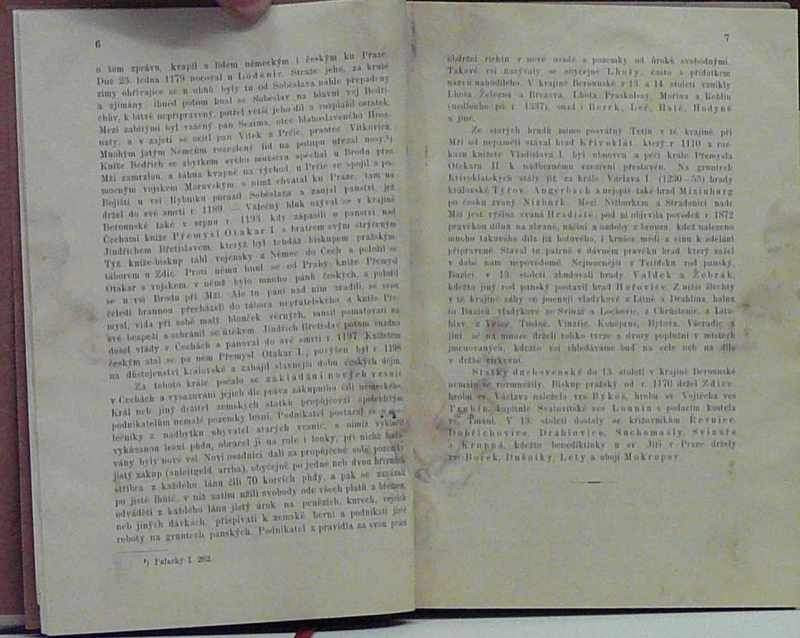 6
o tom zprávu, kvapil s lidem německým i českým ku Praze.
Dne 23. ledna 1179 nocoval u Loděnic. Stráže jeho, za kruté
zimy ohřívajíce se u ohňů byly tu od Soběslava náhle přepadeny
a zjímány, ihned potom hnal se Soběslav na hlavní voj Bedři-
chův, k bitvě nepřipravený, potřel větší jeho díl a rozplašil ostatek.
Mezi zabitými byl vážený pán Sezima, otec blahoslaveného Hroz-
naty, a v zajetí se octl pan Vítek z Prčic, praotec Vítkovců.
Mnohým jatým Němcům rozzlobený lid na potupu uřezal nosy.¹)
Kníže Bedřich se zbytkem svého mužstva spěchal u Brodu přes
Mži zamrzlou, a táhna kvapně na východ, u Prčic se spojil s po-
mocným vojskem Moravským, s nímž chvátal ku Praze, tam na
Bojišti u vsi Rybníku porazil Soběslava a zaujal panství, jež
držel do své smrti r. 1189. — Válečný hluk ozýval se v krajině
Berounské také v srpnu r. 1193, kdy zápasili o panství nad
Čechami kníže Přemysl Otakar I. s bratrem svým strýčeným
Jindřichem Břetislavem, kterýž byl tehdáž biskupem pražským.
Týž kníže-biskup táhl vojensky z Němec do Čech a položil se
táborem u Zdic. Proti němu hnul se od Prahy kníže Přemysl
Otakar s vojskem, v němž bylo mnoho pánů českých, a položil
se u vsi Brodu při Mži. Ale tu páni nad ním zradili, se svou
čeledí brannou přecházeli do tábora nepřátelského a kníže Pře-
mysl, vida při sobě malý hlouček věrných, musil pomatovati na
své bezpečí a zachránil se útěkem. Jindřich Břetislav potom snadno
došel vlády v Čechách a panoval do své smrti r. 1197. Knížetem
českým stal se po něm Přemysl Otakar I., povýšen byl r. 1198
na důstojenství královské a zahájil slavnější dobu českých dějin.
Za tohoto krále počalo se zakládání nových vesnic
v Čechách a vysazování jejich dle práva zákupního čili německého.
Král neb jiný držitel zemských statků propůjčoval spolehlivým
podnikatelům nemalé pozemky lesní. Podnikatel postaral se o ná-
lečníky z nadbytku obyvatel starých vesnic, s nimiž vyklučil
vykázanou lesní půdu, obrátil ji na role i louky, při nichž zakládá-
vány byly nové vsi. Noví osadníci dali za propůjčené sobě pozemky
jistý zákup (anleitgeld, arrha), obyčejně po jedné neb dvou hřivnách
stříbra z každého lánu čili 70 korcích půdy, a pak se zavázali
po jisté lhůtě, v níž zatím užili svobody ode všech platů a břemen,
odváděti z každého lánu jistý úrok na penězích, kurech, vejcích
neb jiných dávkách, přispívati k zemské berni a podnikati jisté
roboty na gruntech panských. Podnikatel z pravidla za svou práci
¹) Palacký I. 262.
7
obdržel richtu v nové osadě s pozemky od úroků svobodnými.
Takové vsi nazývaly se obyčejně Lhoty, často s přídatkem
názvu nahodilého. V krajině Berounské v 13. a 14. století vznikly
Lhota Železná a Brzavá, Lhota Praskolesy, Mořina a Koblín
(nedlouho po r. 1337), snad i Borek, Leč, Hatě, Hodyně
a jiné.
Ze starých hradů mimo posvátný Tetín v té krajině při
Mži od nepaměti stával hrad Křivoklát, který r. 1110 z roz-
kazu knížete Vladislava I. byl obnoven a péčí krále Přemysla
Otakara II. k nádhernému vzezření přestavěn. Na gruntech
Křivoklátských stály již za krále Václava I. (1230—53) hrady
královské Týřov, Angerbach a nejspíš také hrad Miziuburg
po česku zvaný Nižburk. Mezi Nižburkem a Stradonicí nade
Mží jest výšina zvaná Hradiště, pod ní objevila povodeň r. 1872
pravěkou dílnu na zbraně, náčiní a ozdoby z bronzu, kdež nalezeno
mnoho takového díla již hotového, i hrnice mědi a cínu k zdělání
připravené. Stával tu patrně v dávném pravěku hrad, který zašel
v době nám nepovědomé. Nejmocnější v Tetínsku rod panský,
Buzici, v 13. století zbudovali hrady Valdek a Žebrák,
kdežto jiný rod panský postavil hrad Hořovice. Z nižší šlechty
v té krajině záhy se jmenují vladykové z Litně a Drahlína, halna
to Buziců vladykové ze Svinař a Lochovic, z Chrustenic, z Lita-
hlav, z Vráže, Tuslně, Vinařic, Koněprus, Bykoše, Všeradic a
jiní, že na mnoze drželi toliko tvrze a dvory poplužní v místech
jmenovaných, kdežto vsi vzhledáváme buď na cele neb na díle
v držbě církevní.
Statky duchovenské do 13. století v krajině Berounské
nemálo se rozmnožily. Biskup pražský od r. 1170 držel Zdice,
hrobu sv. Václava náležela ves Bykoš, hrobu sv. Vojtěcha ves
Trubín, kapitule Svatovítské ves Lounín s podacím kostela
sv. Tomáš. V 13. století dostaly se křižovníkům Řevnice,
Dobřichovice, Drahlovice, Suchomasty, Svinaře
a Krupná, kdežto benediktinky u sv. Jiří v Praze držely
vsi Borek, Dušníky, Lety a obojí Mokropsy.